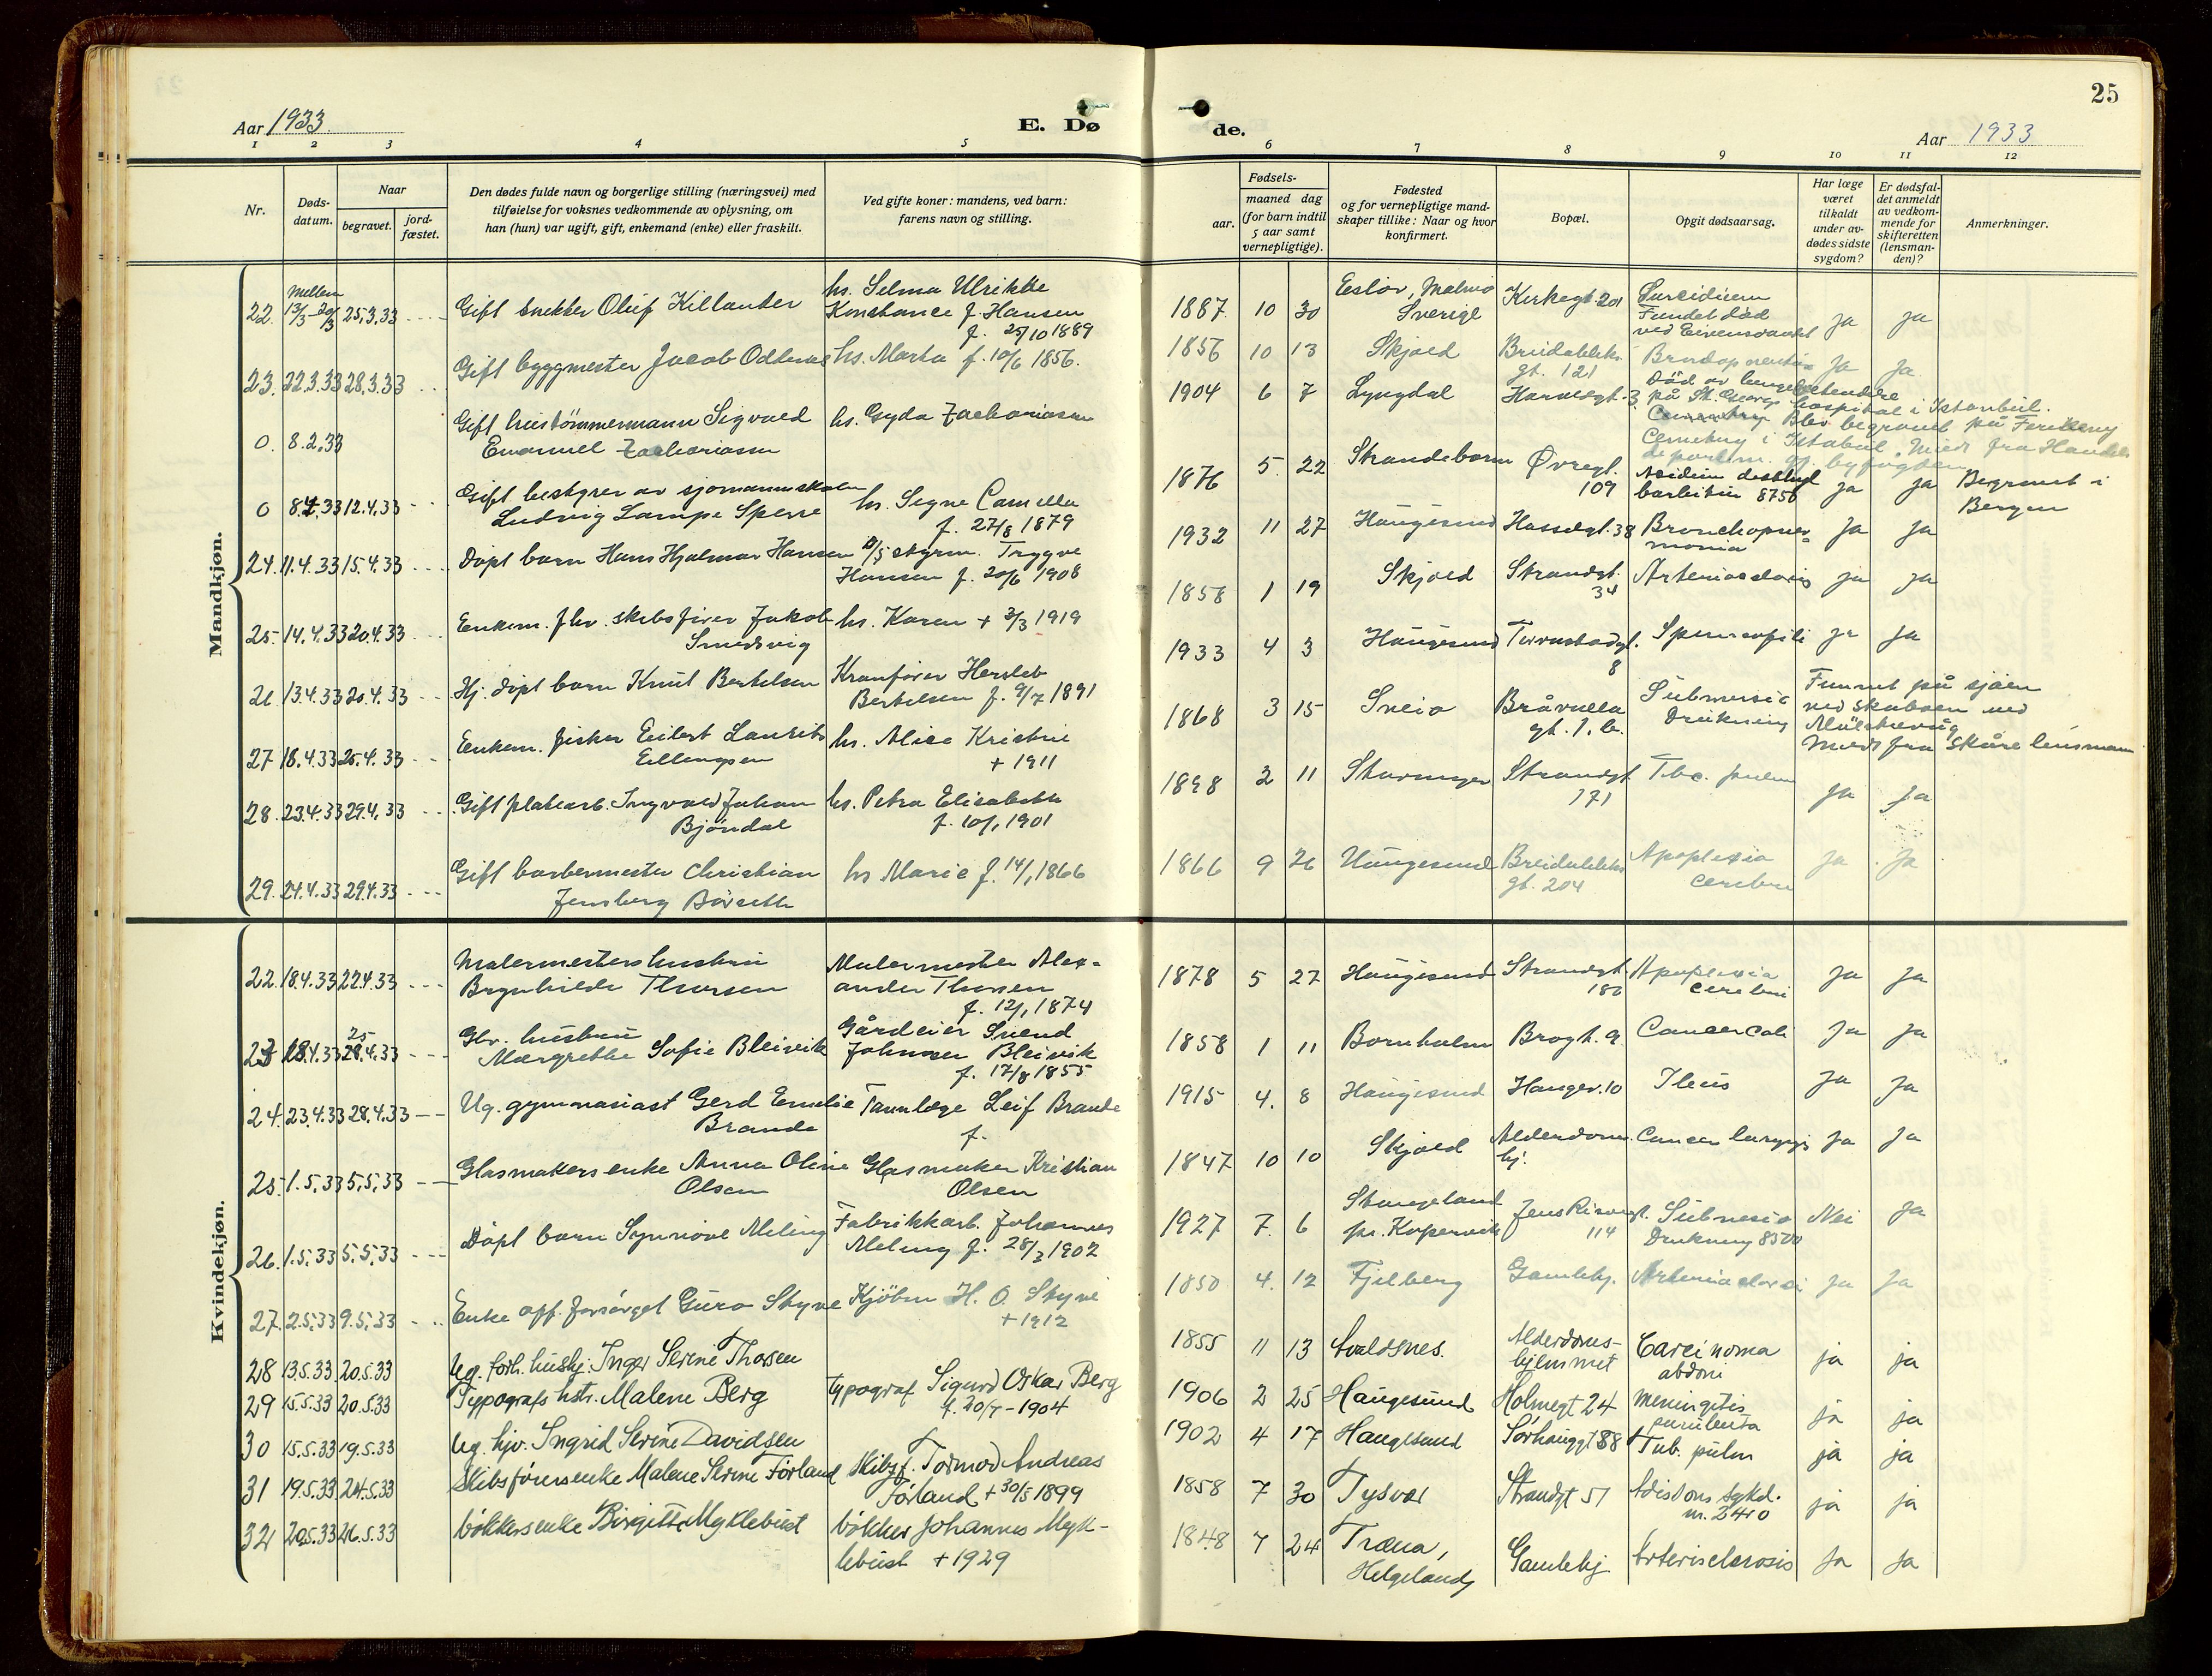 25
Aar 1933
E. Dø
de.
Aar 1933
1 2 3 4 5
6 7 8 9 10 11 12
Nr.
Døds-
datum.
Naar
begravet.
jord-
fæstet.
Den dødes fulde navn og borgerlige stilling (næringsvei) med
tilføielse for voksnes vedkommende av oplysning, om
han (hun) var ugift, gift, enkemand (enke) eller fraskilt.
Ved gifte koner: mandens, ved barn:
farens navn og stilling.
Fødsels-
aar.
maaned dag
(for barn indtil
5 aar samt
vernepligtige).
Fødested
og for vernepligtige mand-
skaper tillike: Naar og hvor
konfirmert.
Bopæl.
Opgit dødsaarsag.
Har læge
været
tilkaldt
under av-
dødes sidste
sygdom?
Er dødsfal-
det anmeldt
av vedkom-
mende for
skifteretten
(lensman-
den)?
Anmerkninger.
Mandkjøn.
22. Mellem 13/3-20/3 25.3.33 Gift snekker Oluf Killander
hs. Selma Ulrikke
Konstance f. Hansen
f. 25/10 1889
1887 10 30 Eslöv, Malmö
Sverige
Kirkegt. 201
Fundet död
ja ja
23. 22.3.33 28.3.33 Gift byggmester Jacob Odtenæs
hs. Marta f. 10/6 1856.
1856 10 13 Skjold Breidablik
gt. 121
ja ja
0. 8.2.33 Gift hustömmermann Sigvald
Emanuel Zachariassen
hs. Gyda Zachariassen
1904 6 7 Lyngdal
på St. Georgs hospital i Istanbul.
Blev begravet på Ferikeny
Cemetery i Istabul. Medt fra Handels
departem. og byfogden
0 8.4.33 12.4.33 Gift bestyrer av sjömannsskolen
Ludvig Lampe Sperre
hs. Signe Camilla
f. 27/8 1879
1876 5. 22 Strandebarm Øvregt.
109
ja ja Begravet i
Bergen
24. 11.4.33 15.4.33 Döpt barn Hans Hjalmar Hansen
styrm. Trygve
Hansen f. 20/6 1908
1932 11 27 Haugesund Hassелgt. 38 Bronchopneu-
monia
ja ja
25. 14.4.33 20.4.33 Enkem. fhv. skibsförer Jakob
Smedsvig
hs. Karen + 3/3 1919
1858 1 19 Skjold Strandgt.
34
ja ja
26 13.4.33 20.4.33 Hj. döpt barn Knut Bertelsen
Kranförer Hersleb
Bertelsen f. 9/7 1891
1933 4 3 Haugesund
8
ja ja
27 18.4.33 25.4.33 Enkem. fisker Eilert Laurits
Ellingsen
hs. Alise Kristine
+ 1911
1868 3 15 Sveio Bråvalla
gt. 1. b.
Drukning
Funnet på sjöen
ved
Medt fra Skåre lensmann
28. 23.4.33 29.4.33 Gift platearb. Ingvald Johan
Bjöndal
hs. Petra Elisabeth
f. 10/1 1901
1898 2 11 Stavanger Strandgt
171
Tbc. pulm
ja ja
29. 24.4.33 29.4.33 Gift barbermester Christian
Jensberg Börseth
hs Marie f. 14/1 1866
1866 9 26 Haugesund Breidabliks
gt. 204
Apoplexia
cerebri
ja ja
Kvindekjøn.
22. 18.4.33 22.4.33 Malermesters hustru
Brynhilde Thorsen
Malermester Alex-
ander Thorsen
f. 12/1 1874
1878 5 27 Haugesund Strandgt
180
Apoplexia
cerebri
ja ja
23 18.4.33 25.4.33 Glv. hustru
Margrethe Sofie Bleivik
Gårdeier Svend
Johnsen Bleivik
f. 17/8 1855
1858 1 11 Bornholm Brogt. 9 Cancer Coli ja ja
24. 23.4.33 28.4.33 Ug. gymnasiast Gerd Emelie
Brande
Tannlæge Leif Brande
f.
1915 4. 8 Haugesund Haugev. 10 Ileus ja ja
25. 1.5.33 5.5.33 Glasmakers enke Anna Oline
Olsen
Glasmaker Kristian
Olsen
1847 10 10 Skjold Alderdoms
hj.
Cancer laryngis ja ja
26. 1.5.33 5.5.33 Döpt barn Synnöve Meling
Fabrikkarb. Johannes
Meling f. 28/3 1902
1927 7. 6 Stangeland
pr. Kopervik
114
Drukning
Nei ja
27. 2.5.33 9.5.33 Enke off. forsörget Guro Styve
Kjöbm H. O. Styve
+ 1912
1850 4. 12 Fjelberg Gamlehj. ja ja
28 13.5.33 20.5.33 Ug. forh. hushj. Inger Serine Thorsen
1855 11 13 Avaldsnes. Alderdoms-
hjemmet
Carcinoma
abdom
ja ja
29 15.5.33 20.5.33 Typografs hstr. Malene Berg
typograf Sigurd Oskar Berg
f. 20/7 - 1904
1906 2 25 Haugesund Holmegt 24 Meningitis
purulenta
ja ja
30 15.5.33 19.5.33 Ug. hjv. Ingrid Serine Davidsen
1902 4 17 Haugesund Sörhauggt 88 Tub. pulm ja ja
31 19.5.33 24.5.33 Skibsförers enke Malene Serine Förland
Skibsf. Tormod Andreas
Förland + 30/5 1899
1858 7 30 Tysvær Strandgt 51 Adisons sykd.
nr. 2410
ja ja
32 20.5.33 26.5.33 bökkers enke Birgitte Myklebust
bökker Johannes Myk-
lebust + 1929
1848 7 24 Træna,
Helgeland
Gamlehj Arterisclerosis ja ja